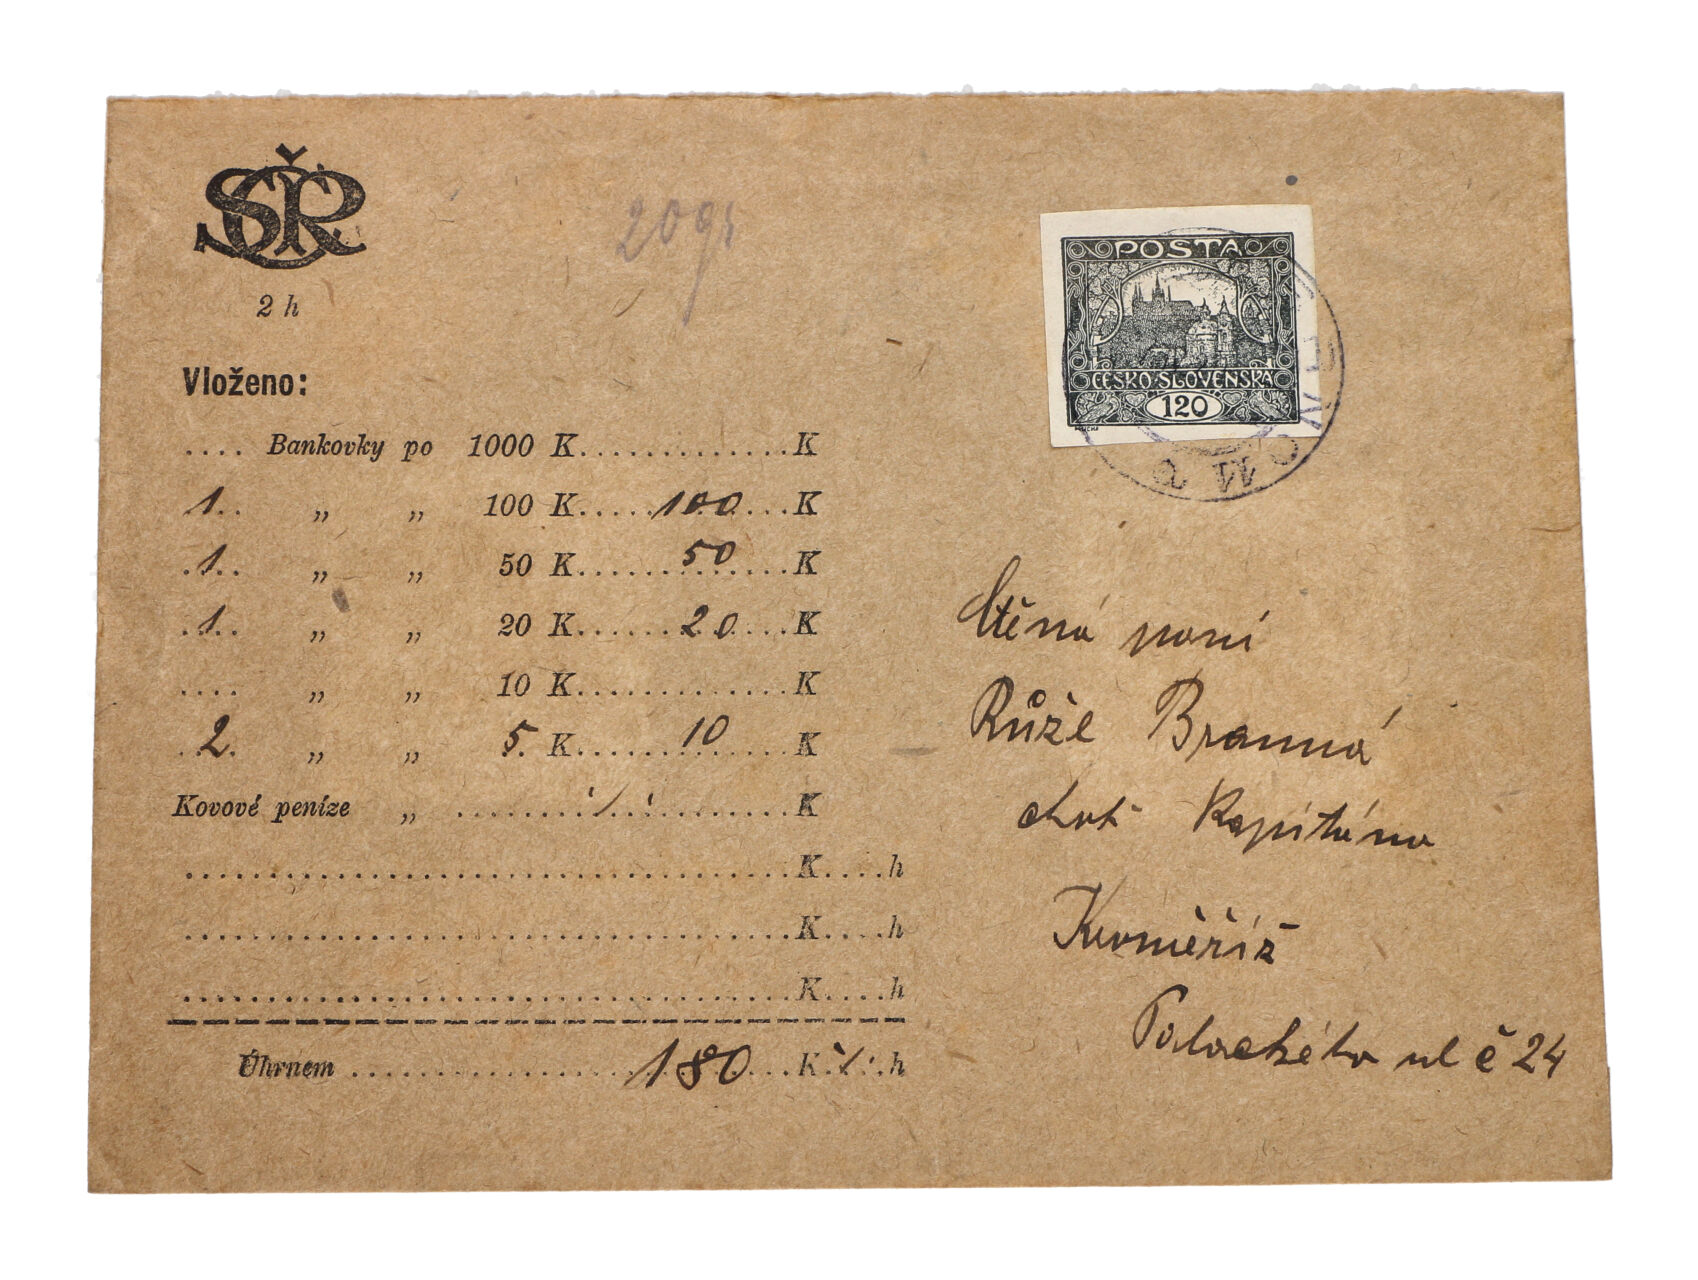 SČR
2 h
20 gr
Vloženo:
.... Bankovky po 1000 K.............K
1.. „ „ 100 K.....100...K
.1.. „ „ 50 K......50....K
.1.. „ „ 20 K......20....K
.... „ „ 10 K.............K
.2. „ „ 5 K......10....K
Kovové peníze „ ........./..........K
....................................K....h
....................................K....h
....................................K....h
Úhrnem ....................180...K./.h
POSTA
ČESKO-SLOVENSKÁ
120
MUCHA
Ctěná paní
Růže Branná
choť Kapitána
Kroměříž
Palackého ul č 24